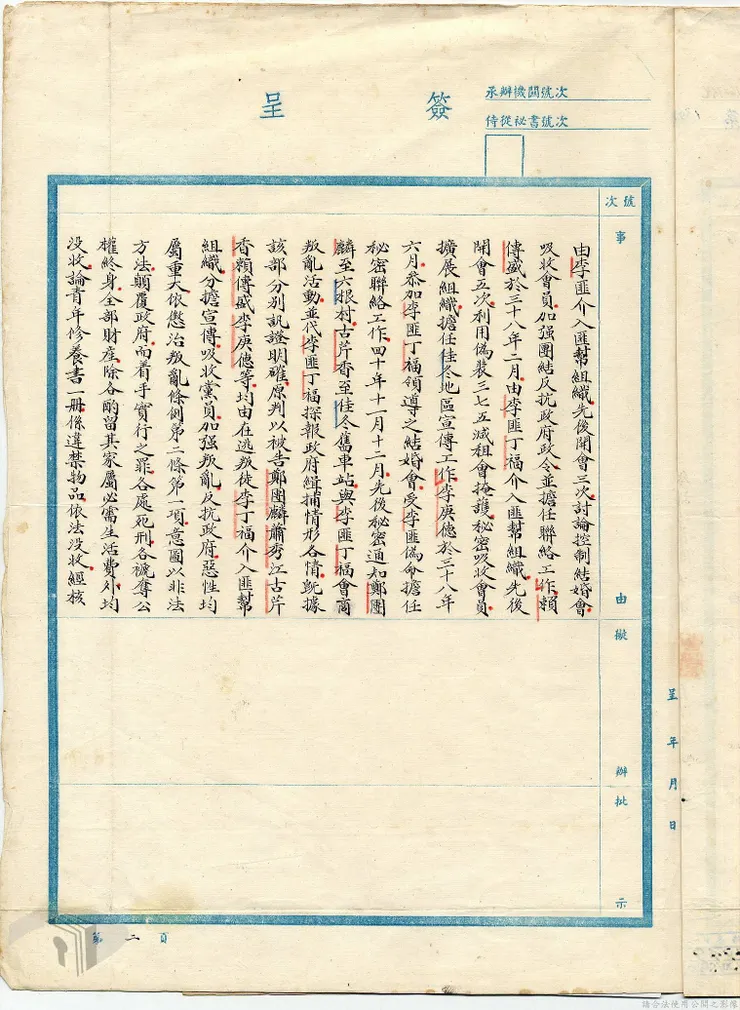 簽呈
承辦機關號次
侍從秘書號次
號次
事由
擬辦
批示
由李匪介入匪幫組織先後開會三次討論控制結婚會
吸收會員加强團結反抗政府政令並擔任聯絡工作賴
傳盛於三十八年二月由李匪丁福介入匪幫組織先後
開會五次利用偽裝三七五減租會掩護秘密吸收會員
擴展組織擔任佳冬地區宣傳工作李庚德於三十八年
六月叅加李匪丁福領導之結婚會受李匪偽命擔任
秘密聯絡工作四十年十一月十二月先後秘密通知鄭團
麟至六根村古芹香至佳冬舊車站與李匪丁福會商
叛亂活動並代李匪丁福探報政府緝捕情形各情旣據
該部分別訊證明確原判以被告鄭團麟蕭秀江古芹
香賴傳盛李庚德等均由在逃叛徒李丁福介入匪幫
組織分擔宣傳吸收黨員加强叛亂反抗政府惡性均
屬重大依懲治叛亂條例第二條第一項意圖以非法
方法顛覆政府而着手實行之罪各處死刑各褫奪公
權終身全部財產除各酌留其家屬必需生活費外均
没收論青年修養書一册係違禁物品依法没收經核
呈 年 月 日
第二頁
請合法使用公開之影像